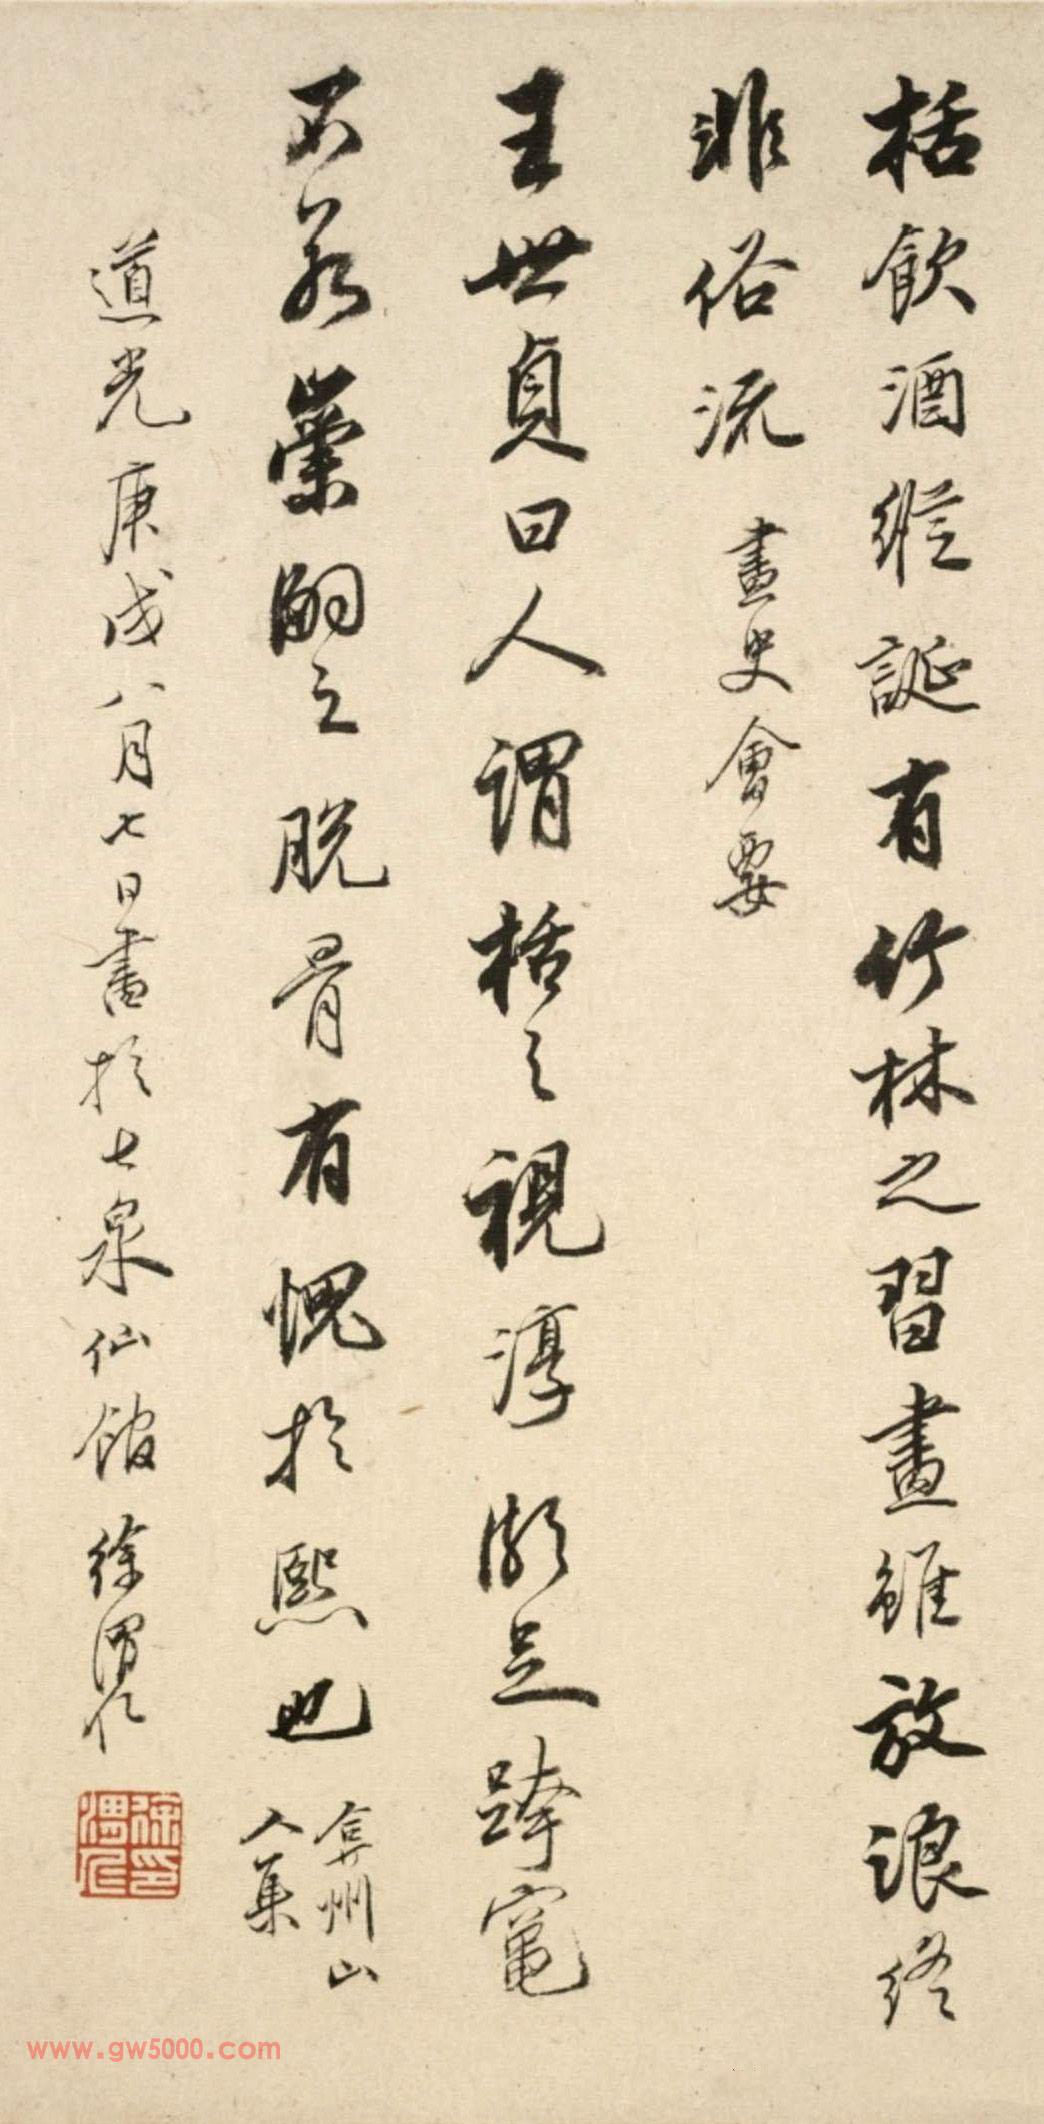 括飲酒縱誕有竹林之習畫雖放浪終
非俗流 畫史會要
王世貞曰人謂括之視淳漸足跨竃
不若崇嗣之脫骨有愧於熙也 弇州山
人集
道光庚戌八月七日書於七泉仙館 徐渭仁
徐渭仁印
www.gw5000.com